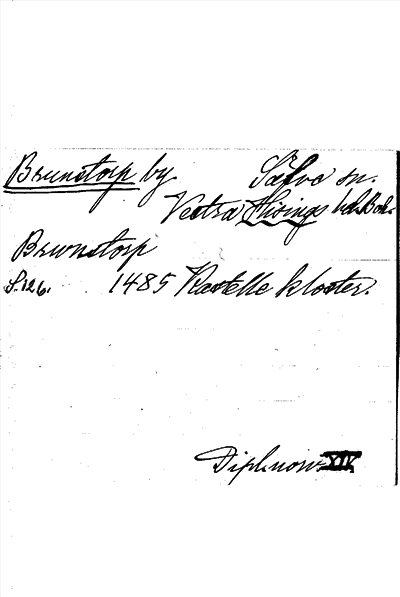 Brunstorp by. Säfve sn.
Vestra Hisings hd. Boh.
Brwnstorp
S. 126. 1485 Kastelle kloster.
Dipl. norv. XIV.